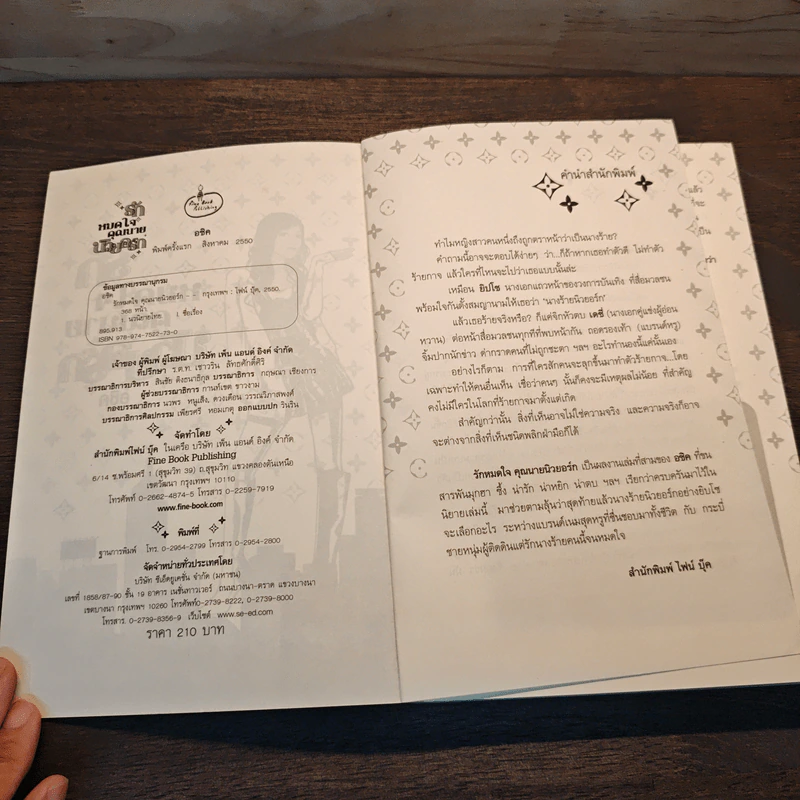 รัก
หมดใจ
คุณนาย
นิวยอร์ก
Fine Book
Publishing
อชิค
พิมพ์ครั้งแรก สิงหาคม 2550
ข้อมูลทางบรรณานุกรม
อชิค.
รักหมดใจ คุณนายนิวยอร์ก.- - กรุงเทพฯ : ไฟน์ บุ๊ค, 2550.
368 หน้า
1. นวนิยายไทย I ชื่อเรื่อง
895.913
ISBN 978-974-7522-73-0
เจ้าของ ผู้พิมพ์ ผู้โฆษณา บริษัท เพ็น แอนด์ อิงค์ จำกัด
ที่ปรึกษา ร.ต.ท. เชาวริน ลัทธศักดิ์ศิริ
บรรณาธิการบริหาร สินชัย คิงธนาธิกุล บรรณาธิการ กฤษณา เชียงการ
ผู้ช่วยบรรณาธิการ กานท์เขต ชาวงาม
กองบรรณาธิการ นวพร หนูเส็ง, ดวงเดือน วรรณวิภาสพงศ์
บรรณาธิการศิลปกรรม เพียรศรี หอมเกตุ ออกแบบปก รินริน
จัดทำโดย
สำนักพิมพ์ไฟน์ บุ๊ค ในเครือ บริษัท เพ็น แอนด์ อิงค์ จำกัด
Fine Book Publishing
6/14 ซ.พร้อมศรี 1 (สุขุมวิท 39) ถ.สุขุมวิท แขวงคลองตันเหนือ
เขตวัฒนา กรุงเทพฯ 10110
โทรศัพท์ 0-2662-4874-5 โทรสาร 0-2259-7919
www.fine-book.com
พิมพ์ที่
ฐานการพิมพ์ โทร. 0-2954-2799 โทรสาร 0-2954-2800
จัดจำหน่ายทั่วประเทศโดย
บริษัท ซีเอ็ดยูเคชั่น จำกัด (มหาชน)
เลขที่ 1858/87-90 ชั้น 19 อาคาร เนชั่นทาวเวอร์ ถนนบางนา-ตราด แขวงบางนา
เขตบางนา กรุงเทพฯ 10260 โทรศัพท์0-2739-8222, 0-2739-8000
โทรสาร. 0-2739-8356-9 เว็บไซต์ www.se-ed.com
ราคา 210 บาท
คำนำสำนักพิมพ์
ทำไมหญิงสาวคนหนึ่งถึงถูกตราหน้าว่าเป็นนางร้าย?
คำถามนี้อาจจะตอบได้ง่ายๆ ว่า...ก็ถ้าหากเธอทำตัวดี ไม่ทำตัว
ร้ายกาจ แล้วใครที่ไหนจะไปว่าเธอแบบนั้นล่ะ
เหมือน ยิปโซ นางเอกแถวหน้าของวงการบันเทิง ที่สื่อมวลชน
พร้อมใจกันตั้งสมญานามให้เธอว่า 'นางร้ายนิวยอร์ก'
แล้วเธอร้ายจริงหรือ? ก็แค่จิกหัวตบ เดซี่ (นางเอกคู่แข่งผู้อ่อน
หวาน) ต่อหน้าสื่อมวลชนทุกที่ที่พบหน้ากัน ถอดรองเท้า (แบรนด์หรู)
จิ้มปากนักข่าว ด่ากราดคนที่ไม่ถูกชะตา ฯลฯ อะไรทำนองนี้แค่นั้นเอง
อย่างไรก็ตาม การที่ใครสักคนจะลุกขึ้นมาทำตัวร้ายกาจ...โดย
เฉพาะทำให้คนอื่นเห็น เชื่อว่าคนๆ นั้นก็คงจะมีเหตุผลไม่น้อย ที่สำคัญ
คงไม่มีใครในโลกที่ร้ายกาจมาตั้งแต่เกิด
สำคัญกว่านั้น สิ่งที่เห็นอาจไม่ใช่ความจริง และความจริงก็อาจ
จะต่างจากสิ่งที่เห็นชนิดพลิกฝ่ามือก็ได้
รักหมดใจ คุณนายนิวยอร์ก เป็นผลงานเล่มที่สามของ อชิค ที่ขน
สารพันมุกฮา ซึ้ง น่ารัก น่าหยิก น่าตบ ฯลฯ เรียกว่าครบครันมาไว้ใน
นิยายเล่มนี้ มาช่วยตามลุ้นว่าสุดท้ายแล้วนางร้ายนิวยอร์กอย่างยิปโซ
จะเลือกอะไร ระหว่างแบรนด์เนมสุดหรูที่ชื่นชอบมาทั้งชีวิต กับ กระบี่
ชายหนุ่มผู้ติดดินแต่รักนางร้ายคนนี้จนหมดใจ
สำนักพิมพ์ ไฟน์ บุ๊ค